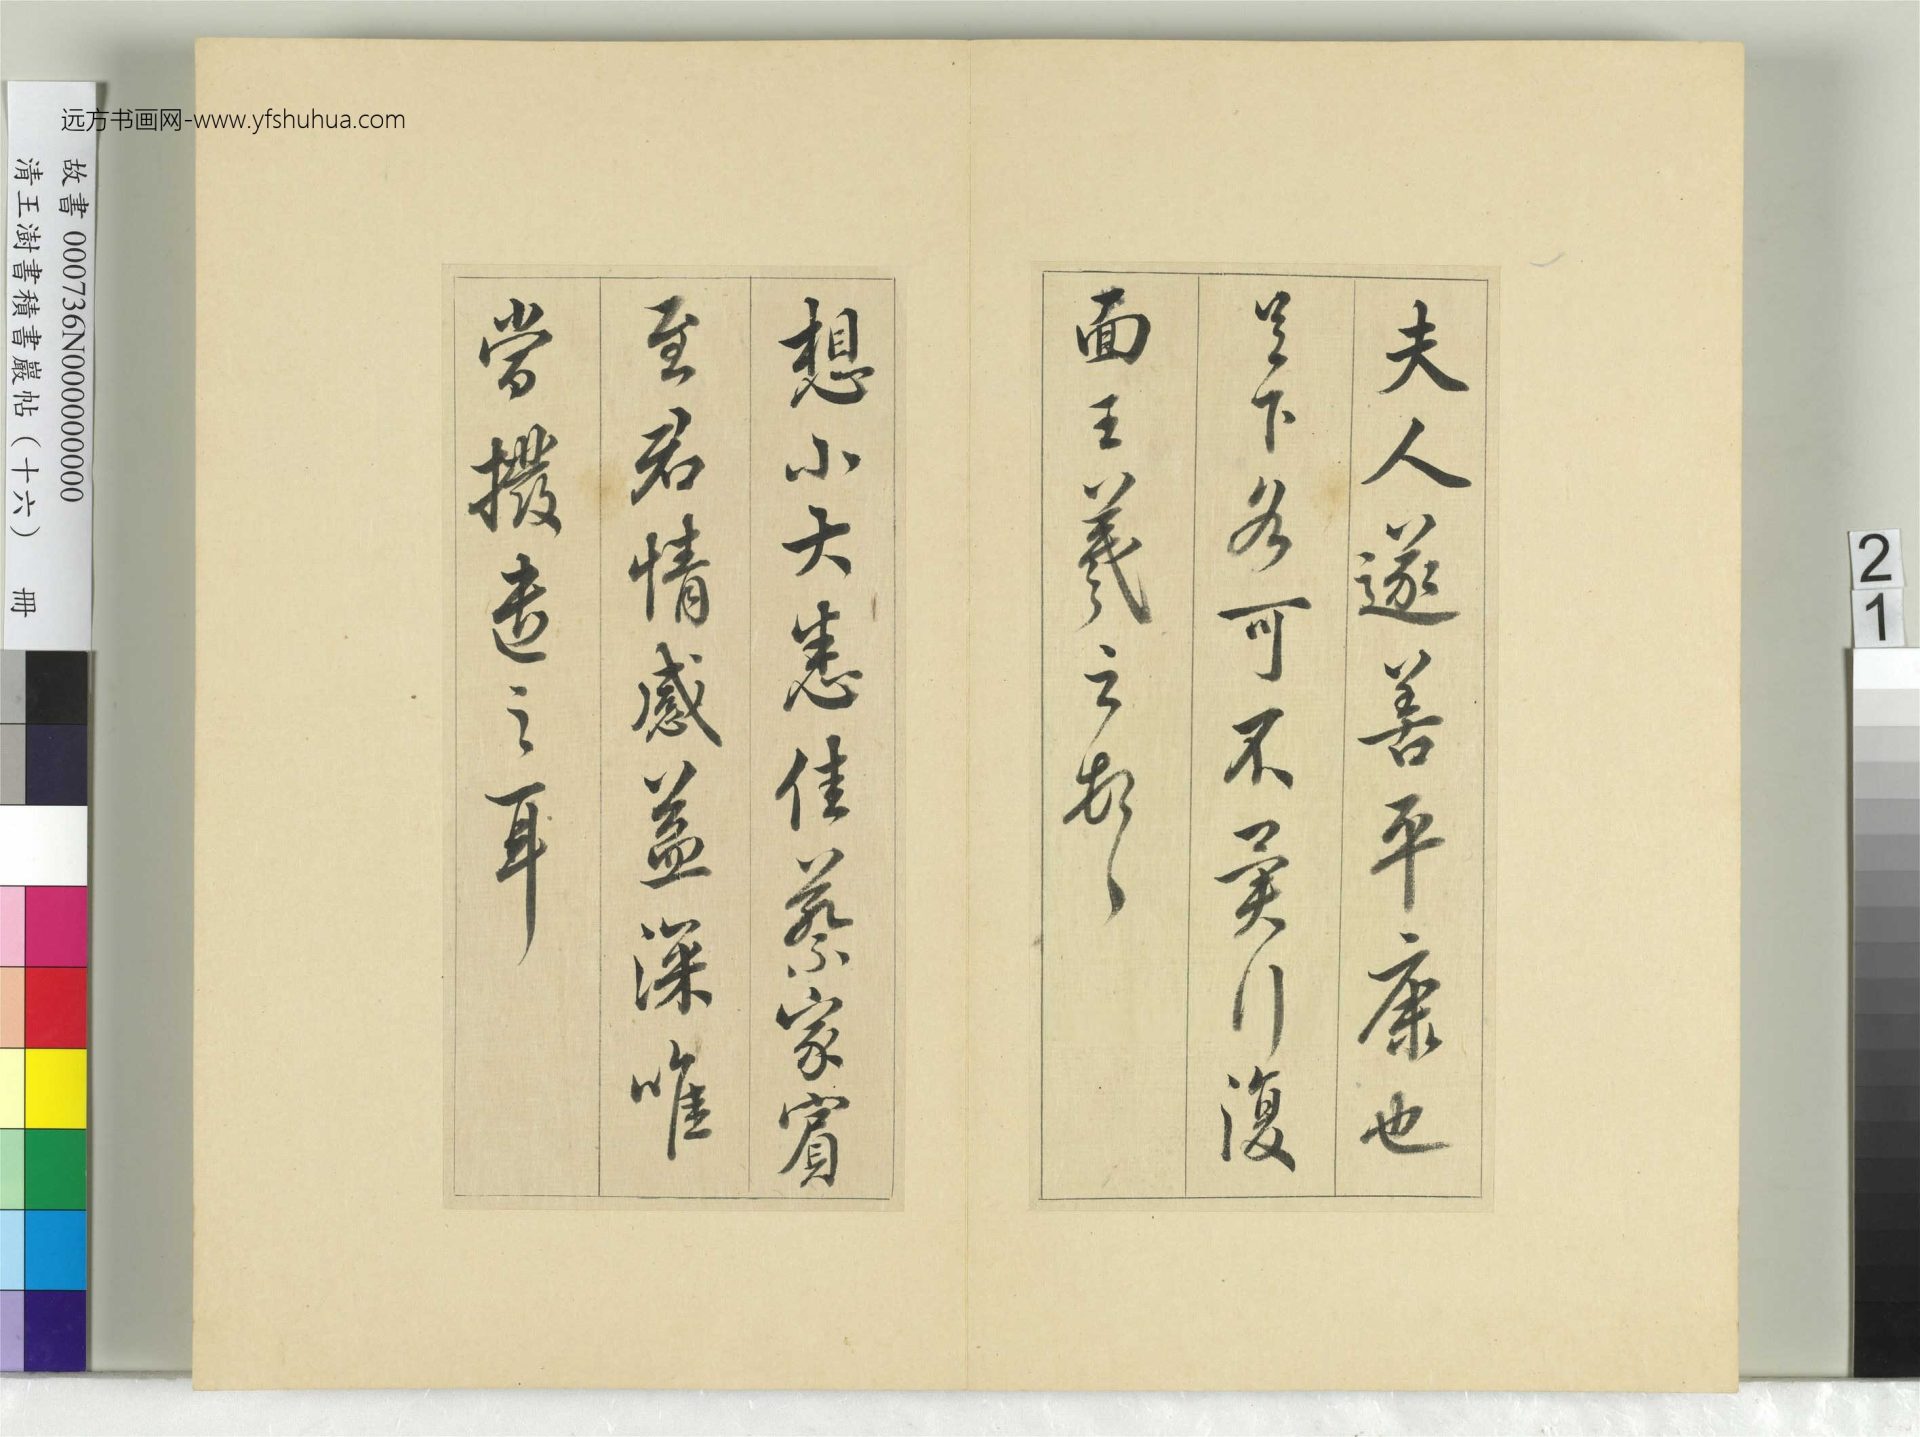 夫人遂善平康也
足下各可不異行復
面王羲之頓〻
想小大悉佳蔡家賓
至君情感益深唯
當撥遣之耳
远方书画网-www.yfshuhua.com
故書 000736N000000000
清王澍書積書巖帖（十六） 冊
2
1